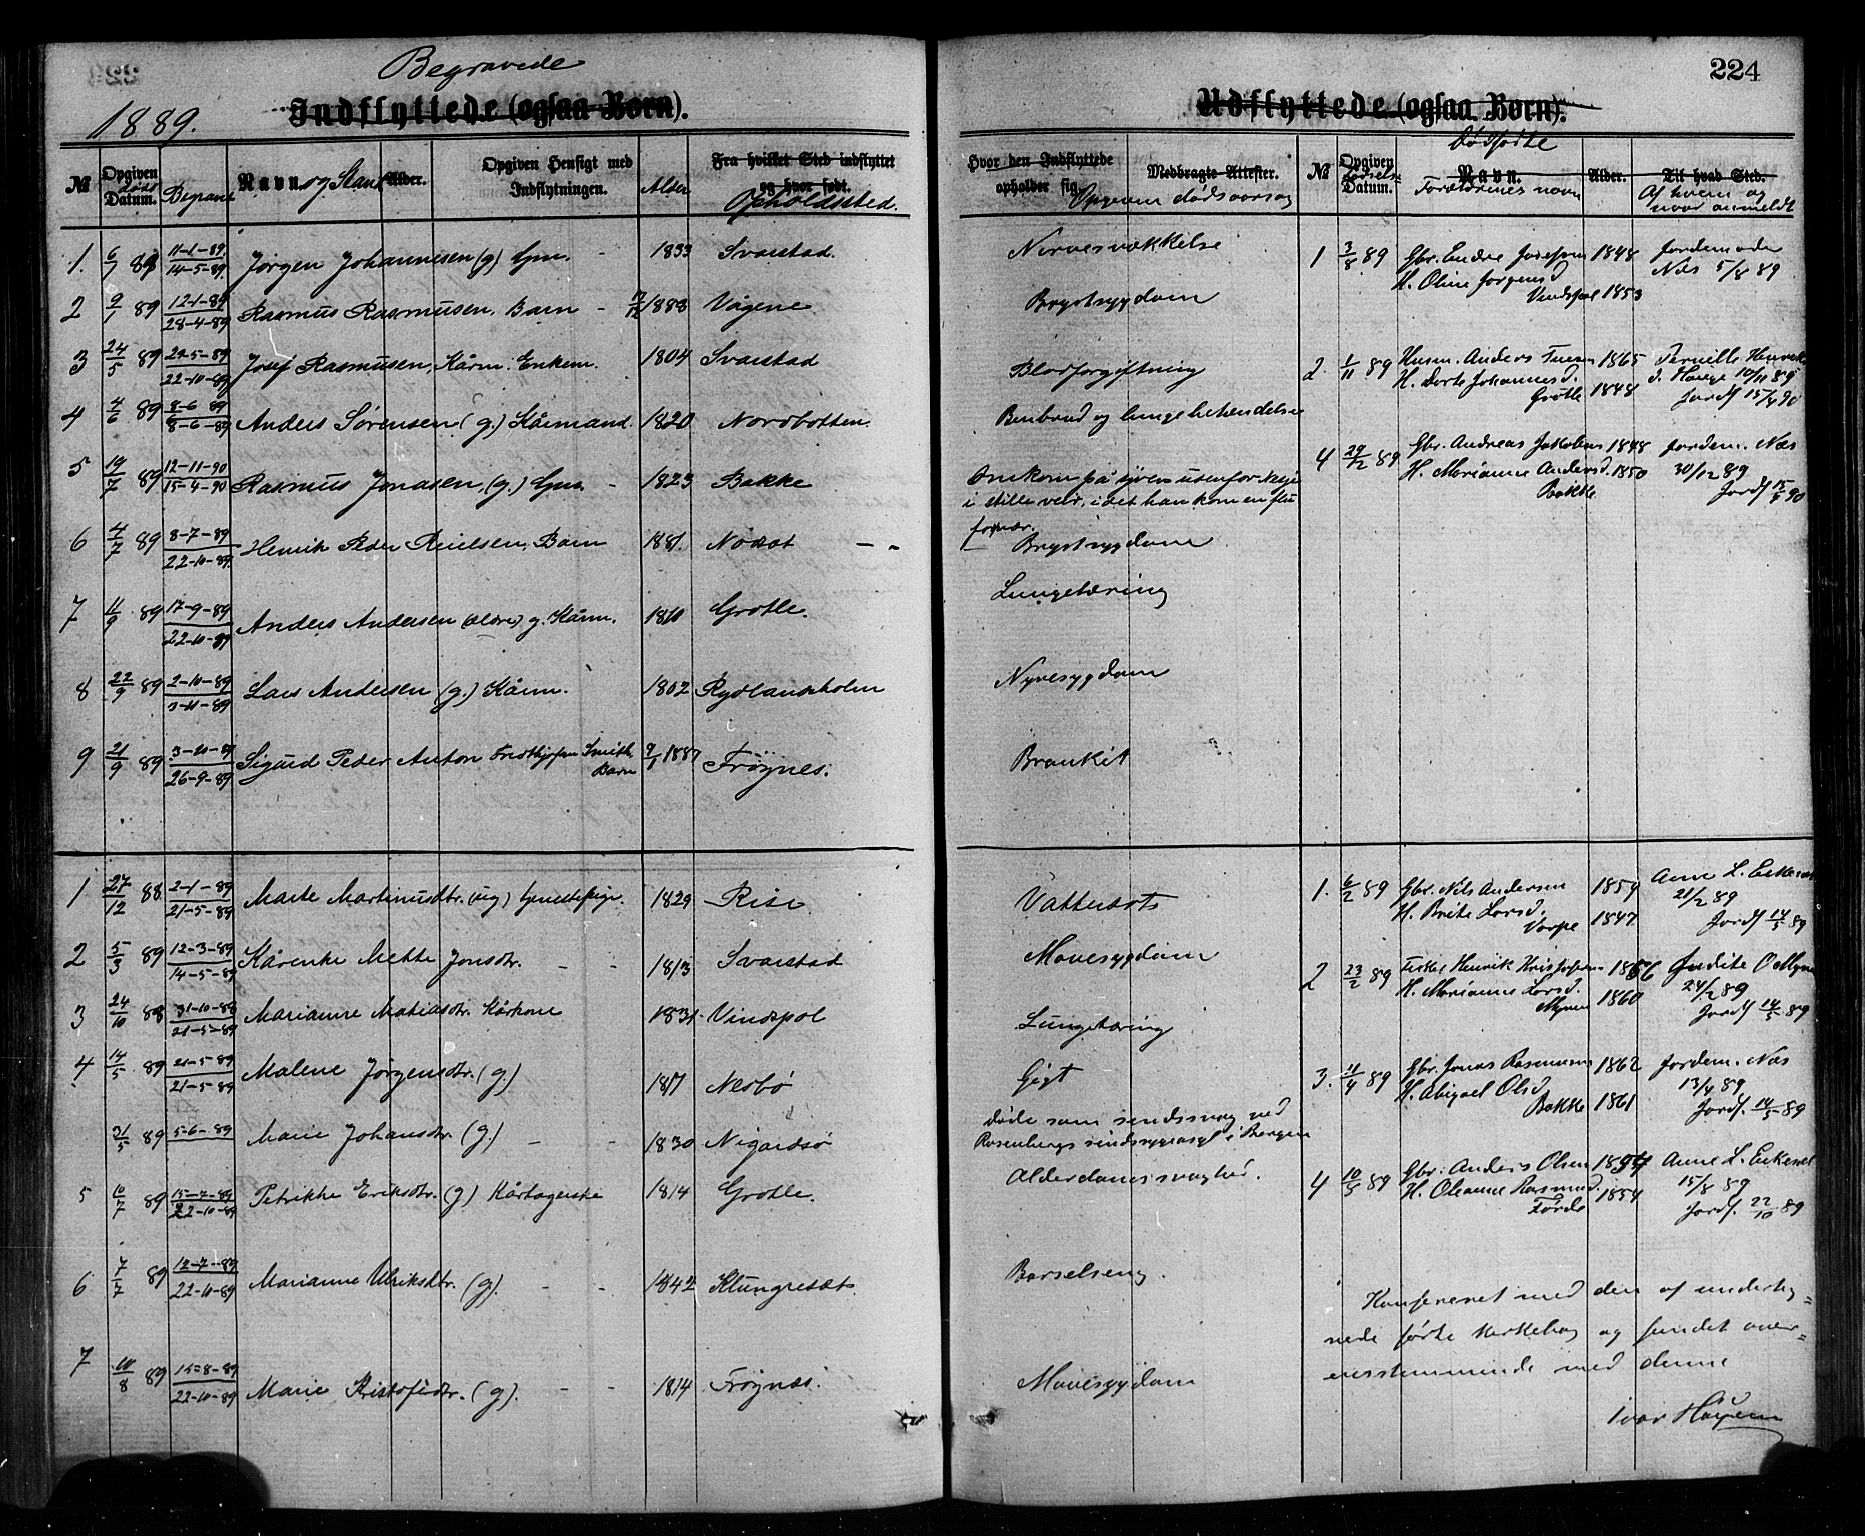 Begravede
1889.
Indflyttede (ogsaa Børn).
№ Opgiven Datum. død Begravet Navn og Stand Alder. Opgiven Hensigt med Indflytningen. Alder Fra hvilket Sted indflyttet og hvor født. Opholdssted.
1. 6/1 89 11-1-89 14-5-89 Jørgen Johannesen (g) Gm. - 1833 Svarstad.
2 9/1 89 12-1-89 28-4-89 Rasmus Rasmusen, Barn - 1883 Vågene
3 24/5 89 29-5-89 22-10-89 Josef Rasmusen, Kårm. Enkem. 1804 Svarstad
4 4/6 89 8-6-89 8-6-89 Anders Sørensen (g.) Kårmand. 1820 Nordbotten
5 19/7 89 12-11-90 15-4-90 Rasmus Jonasen, (g.) Gm. - 1823 Bakke
6 4/7 89 8-7-89 22-10-89 Henrik Peder Barn 1881.
7 11/9 89 17-9-89 22-10-89 Anders Andersen (ældre) g. Kårm. 1810 Grotle.
8 22/9 89 2-10-89 3-11-89 Lars Andersen (g.) Kårm. 1802 Rydlandsholm
9 21/9 89 3-10-89 26-9-89 Sigurd Peder Anton Fridthjofsen Smith Barn 1887 Frøynes.
1 27/12 88 2-1-89 21-5-89 Marte Martinusdtr. (ug) 1829 Rise
2 5/3 89 12-3-89 14-5-89 Kårenke Mette Jonsdtr. - - 1813 Svarstad
3 24/10 88 31-10-88 21-5-89 Marianne Matiasdtr. Kårkone 1831 Vindspol
4 14/5 89 21-5-89 21-5-89 Malene Jørgensdtr. (g.) 1817 Nesbø
31/5 89 5-6-89 Marie Johansdtr. (g.) - - 1830 Nigardsø
5 10/7 89 15-7-89 22-10-89 Petrikke Eriksdtr. (g) 1814 Grotle.
6 7/7 89 12-7-89 22-10-89 Marianne Ulriksdtr. (g). - - 1842 Klungresæt.
7 10/8 89 15-8-89 22-10-89 Marie Kristofersdtr. (g). - - 1814 Frøynæs.
224
Udflyttede (ogsaa Børn).
Dødfødte
Hvor den Indflyttede opholder sig. Medbragte Attester. Opgiven dødsaarsag № Opgiven Datum. Fødsels Navn. Forældrenes navn Alder. Til hvad Sted. Af hvem og naar anmeldt
Nervesvækkelse
Brystsygdom
Blodforgiftning
Benbrud og lungebetændelse
Omkom på sjøen udenfor
i stille veir, idet han kom en flu
for nær.
Brystsygdom
Lungetæring
Nyresygdom
Bronkit
Vattersots
Mavesygdom
Lungetæring
Gigt
døde som sindssvag ved
Rosenbergs sindssygeasyl i Bergen
Alderdomssvaghed.
Barselseng.
Mavesygdom
1 3/8 89 Gbr. Endre Josefsen 1848 Jordemoder
H. Oline Jørgensd. Næs 5/8 89
Vindspol 1853
2. 1/11 89 Husm. Anders 1865 Pernelle Henriks
H. Dorte Johannesd. d. Hauge 10/11 89
Grotle 1848 Jordf 15/4 90
4 29/12 89 Gbr. Andreas Jakobsen 1848 Jordem. Næs
H. Marianne Andersd. 1850 30/12 89
Bakke Jordf 15/5 90
1. 6/2 89 Gbr. Nils Andersen 1859 Anne L. Eikeset
H. Brite Larsd. 21/2 89
Varpe 1847 Jordf 14/5 89
2 23/2 89 Fisker Henrik Kristofersen 1866 Judite O Myren
H. Marianne Larsd. 24/2 89
Myren 1860 Jordf 14/5 89
3. 11/4 89 Gbr. Jonas Rasmusen 1862 Jordem. Næs
H. Abigael Olsd. 13/4 89
Bakke 1861 Jordf. 14/5 89
4 10/5 89 Gbr. Anders Olsen 1854 Anne L. Eikeset
H. Oleanne Rasmusd. 15/8 89
Førde 1854 Jordf. 22/10 89
Konfereret med den af undertegnede
førte kirkebog og fundet overensstemmende
med denne
Ivar